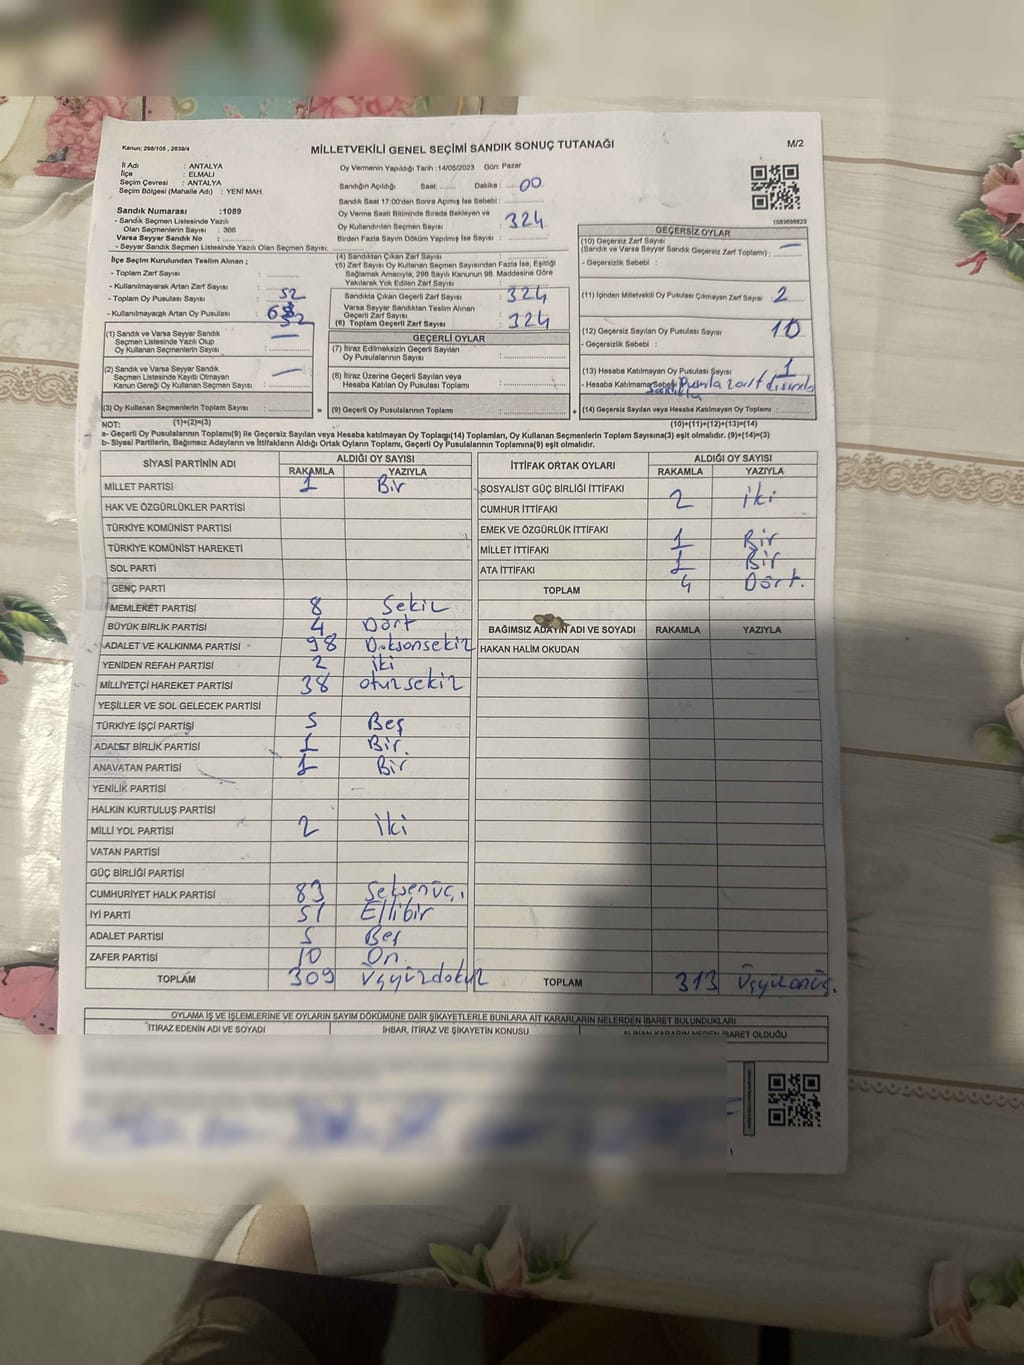 Kanun; 298/105 , 2839/4
MİLLETVEKİLİ GENEL SEÇİMİ SANDIK SONUÇ TUTANAĞI
M/2
İl Adı : ANTALYA
İlçe : ELMALI
Seçim Çevresi : ANTALYA
Seçim Bölgesi (Mahalle Adı) : YENİ MAH.
Sandık Numarası :1089
- Sandık Seçmen Listesinde Yazılı
Olan Seçmenlerin Sayısı : 366
Varsa Seyyar Sandık No :
- Seyyar Sandık Seçmen Listesinde Yazılı Olan Seçmen Sayısı:
İlçe Seçim Kurulundan Teslim Alınan ;
- Toplam Zarf Sayısı :
- Kullanılmayarak Artan Zarf Sayısı : 52
- Toplam Oy Pusulası Sayısı :
- Kullanılmayarak Artan Oy Pusulası : 52
(1) Sandık ve Varsa Seyyar Sandık
Seçmen Listesinde Yazılı Olup
Oy Kullanan Seçmenlerin Sayısı : —
(2) Sandık ve Varsa Seyyar Sandık
Seçmen Listesinde Kayıtlı Olmayan
Kanun Gereği Oy Kullanan Seçmen Sayısı : —
(3) Oy Kullanan Seçmenlerin Toplam Sayısı :
Oy Vermenin Yapıldığı Tarih :14/05/2023 Gün: Pazar
Sandığın Açıldığı Saat: Dakika : 00
Sandık Saat 17:00'den Sonra Açılmış İse Sebebi :
Oy Verme Saati Bitiminde Sırada Bekleyen ve
Oy Kullandırılan Seçmen Sayısı : 324
Birden Fazla Sayım Döküm Yapılmış İse Sayısı :
(4) Sandıktan Çıkan Zarf Sayısı :
(5) Zarf Sayısı Oy Kullanan Seçmen Sayısından Fazla İse, Eşitliği
Sağlamak Amacıyla; 298 Sayılı Kanunun 98. Maddesine Göre
Yakılarak Yok Edilen Zarf Sayısı :
Sandıkta Çıkan Geçerli Zarf Sayısı : 324
Varsa Seyyar Sandıktan Teslim Alınan
Geçerli Zarf Sayısı : 324
(6) Toplam Geçerli Zarf Sayısı :
GEÇERLİ OYLAR
(7) İtiraz Edilmeksizin Geçerli Sayılan
Oy Pusulalarının Sayısı :
(8) İtiraz Üzerine Geçerli Sayılan veya
Hesaba Katılan Oy Pusulası Toplamı :
= (9) Geçerli Oy Pusulalarının Toplamı :
1083696823
GEÇERSİZ OYLAR
(10) Geçersiz Zarf Sayısı
(Sandık ve Varsa Seyyar Sandık Geçersiz Zarf Toplamı) : —
- Geçersizlik Sebebi :
(11) İçinden Milletvekili Oy Pusulası Çıkmayan Zarf Sayısı : 2
(12) Geçersiz Sayılan Oy Pusulası Sayısı : 10
- Geçersizlik Sebebi :
(13) Hesaba Katılmayan Oy Pusulası Sayısı : 1
- Hesaba Katılmama Sebebi Pusula zarf dışında
+ (14) Geçersiz Sayılan veya Hesaba Katılmayan Oy Toplamı :
NOT: (1)+(2)=(3) (10)+(11)+(12)+(13)=(14)
a- Geçerli Oy Pusulalarının Toplamı(9) ile Geçersiz Sayılan veya Hesaba katılmayan Oy Toplamı(14) Toplamları, Oy Kullanan Seçmenlerin Toplam Sayısına(3) eşit olmalıdır. (9)+(14)=(3)
b- Siyasi Partilerin, Bağımsız Adayların ve İttifakların Aldığı Ortak Oyların Toplamı, Geçerli Oy Pusulalarının Toplamına(9) eşit olmalıdır.
SİYASİ PARTİNİN ADI ALDIĞI OY SAYISI
RAKAMLA YAZIYLA
MİLLET PARTİSİ 1 Bir
HAK VE ÖZGÜRLÜKLER PARTİSİ
TÜRKİYE KOMÜNİST PARTİSİ
TÜRKİYE KOMÜNİST HAREKETİ
SOL PARTİ
GENÇ PARTİ
MEMLEKET PARTİSİ 8 Sekiz
BÜYÜK BİRLİK PARTİSİ 4 Dört
ADALET VE KALKINMA PARTİSİ 98 Doksonsekiz
YENİDEN REFAH PARTİSİ 2 iki
MİLLİYETÇİ HAREKET PARTİSİ 38 otuzsekiz
YEŞİLLER VE SOL GELECEK PARTİSİ
TÜRKİYE İŞÇİ PARTİSİ 5 Beş
ADALET BİRLİK PARTİSİ 1 Bir.
ANAVATAN PARTİSİ 1 Bir
YENİLİK PARTİSİ
HALKIN KURTULUŞ PARTİSİ
MİLLİ YOL PARTİSİ 2 iki
VATAN PARTİSİ
GÜÇ BİRLİĞİ PARTİSİ
CUMHURİYET HALK PARTİSİ 83 Seksenüç
İYİ PARTİ 51 Ellibir
ADALET PARTİSİ 5 Beş
ZAFER PARTİSİ 10 On
TOPLAM 309 Üçyüzdokuz
İTTİFAK ORTAK OYLARI ALDIĞI OY SAYISI
RAKAMLA YAZIYLA
SOSYALİST GÜÇ BİRLİĞİ İTTİFAKI
CUMHUR İTTİFAKI 2 iki
EMEK VE ÖZGÜRLÜK İTTİFAKI
MİLLET İTTİFAKI 1 Bir
ATA İTTİFAKI 1 Bir
TOPLAM 4 Dört.
BAĞIMSIZ ADAYIN ADI VE SOYADI RAKAMLA YAZIYLA
HAKAN HALİM OKUDAN
TOPLAM 313 Üçyüzonüç.
OYLAMA İŞ VE İŞLEMLERİNE VE OYLARIN SAYIM DÖKÜMÜNE DAİR ŞİKAYETLERLE BUNLARA AİT KARARLARIN NELERDEN İBARET BULUNDUKLARI
İTİRAZ EDENİN ADI VE SOYADI İHBAR, İTİRAZ VE ŞİKAYETİN KONUSU ALINAN KARARIN NEDEN İBARET OLDUĞU